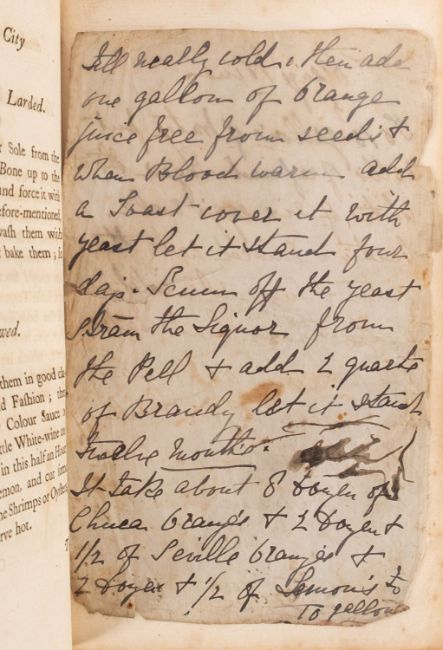 City
Larded.
r Sole from the
Bone up to the
und force it with
efore-mentioned,
wash them with
bake them ; so
wed.
them in good cla
d Fashion ; the
Colour Sauce a
tle White-wine an
in this half an Hour
emon, and cut som
he Shrimps or Oyster
rve hot.
Till neatly cold, then add
one gallon of Orange
juice free from seeds &
when Blood warm add
a Toast cover it with
yeast let it stand four
days. Scum off the yeast
Strain the Liquor from
the Pell & add 2 quarts
of Brandy let it stand
Twelve months.
It take about 8 Dozen of
China Oranges & 2 Dozen &
1/2 of Seville Oranges &
2 Dozen & 1/2 of Lemons to
To gallons